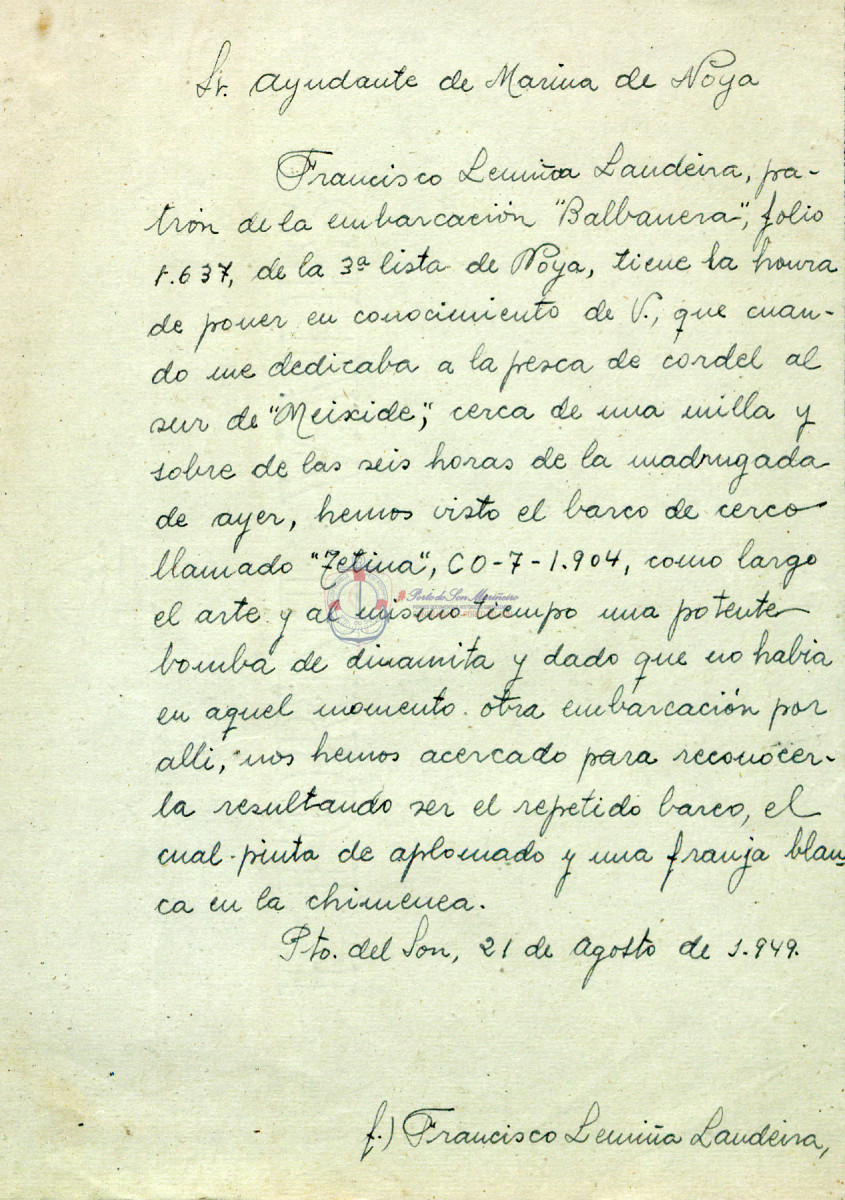 Sr. Ayudante de Marina de Noya
Francisco Lemiña Landeira, pa-
trón de la embarcación "Balbanera", folio
1.637, de la 3ª lista de Noya, tiene la honra
de poner en conocimiento de V., que cuan-
do me dedicaba a la pesca de cordel al
sur de "Meixide", cerca de una milla y
sobre de las seis horas de la madrugada
de ayer, hemos visto el barco de cerco
llamado "Zetina", CO-7-1.904, como largo
el arte y al mismo tiempo una potente
Porto do Son Mariñeiro
bomba de dinamita y dado que no habia
en aquel momento otra embarcación por
alli, nos hemos acercado para reconocer-
la resultando ser el repetido barco, el
cual pinta de aplomado y una franja blan-
ca en la chimenea.
Pto. del Son, 21 de Agosto de 1.949.
f.) Francisco Lemiña Landeira,